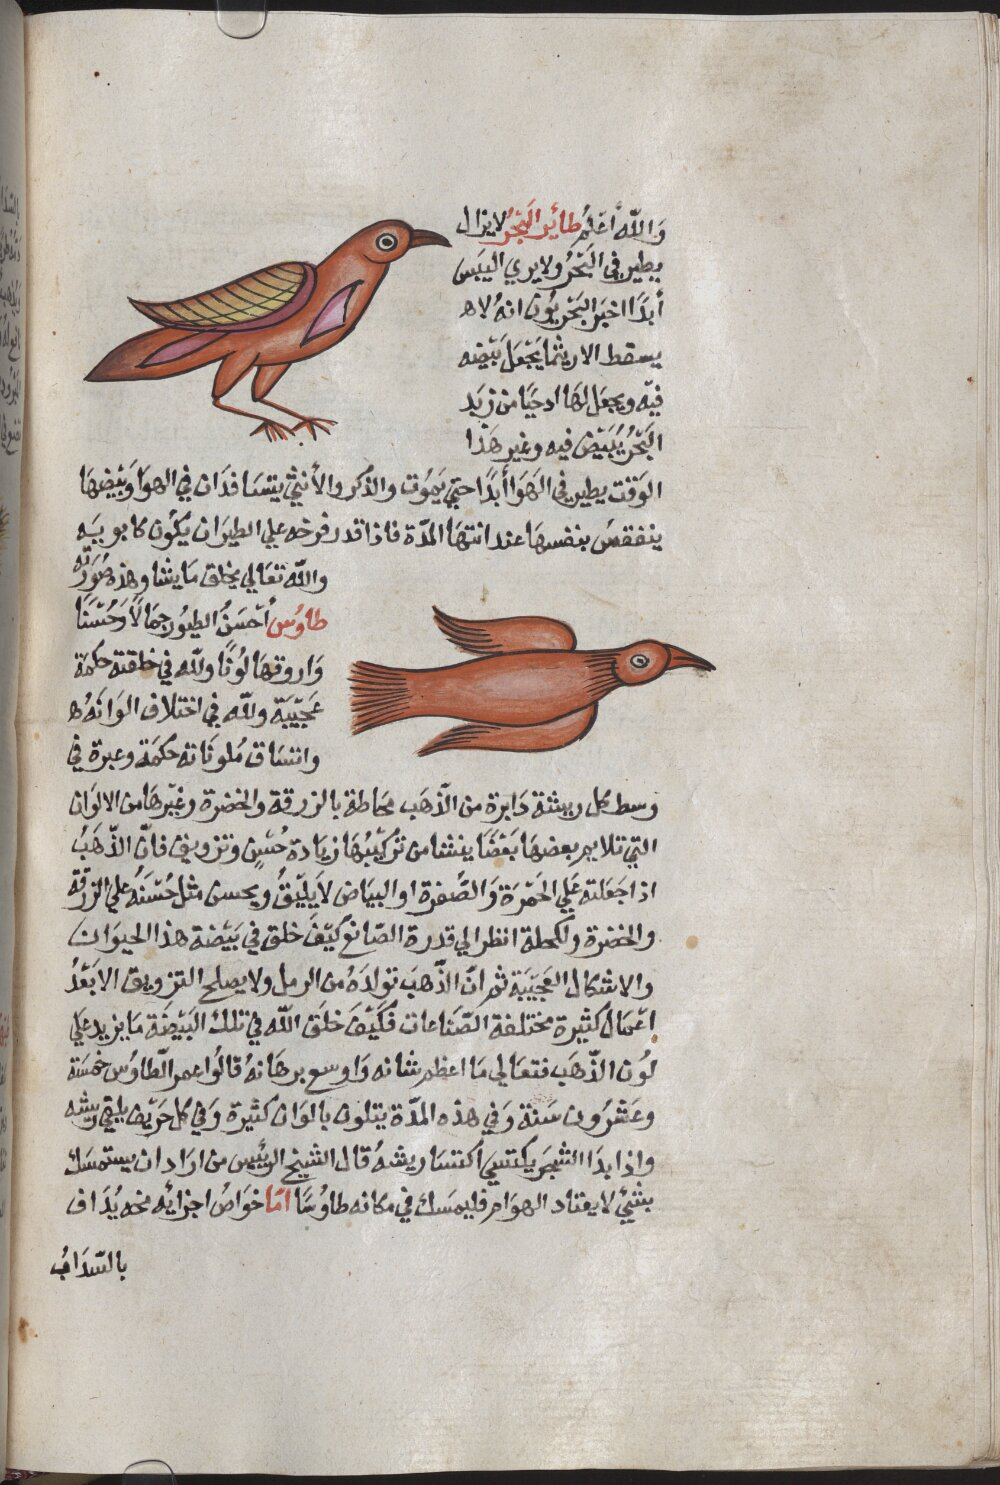 والله أعلم طائر البحر لا يزال
يطير في البحر ولا يري اليبس
أبدا اخبر البحريون انه لا ه
يسقط الا ريثما يجعل بيضه
فيه ويجعل لها ادحيا من زبد
البحر يبيض فيه وغير هذا
الوقت يطير في الهوا أبدا حتي يموت والذكر والأنثي يتسافدان في الهوا وبيضها
ينفقص بنفسها عند انتها المدة فاذا قدر فرخه علي الطيران يكون كابويه
والله تعالي يخلق ما يشا وهذه صورته
طاوس أحسن الطيور جمالا وحسنا
واروقها لونا ولله في خلقته حكمة
عجيبة ولله في اختلاف الوانه ه
واتساق ملوناته حكمة وعبرة في
وسط كل ريشة دايرة من الذهب محاطة بالزرقة والخضرة وغيرها من الالوان
التي تلايم بعضها بعضا ينشا من تركيبها زيادة حسن وتزويق فان الذهب
اذا جعلته علي الحمرة والصفرة او البياض لا يليق ويحسن مثل حسنه علي الزرقة
والخضرة والكحلة انظر الي قدرة الصانع كيف خلق في بيضة هذا الحيوان
والاشكال العجيبة ثم ان الذهب تولده من الرمل ولا يصلح التزويق الا بعد
اعمال كثيرة مختلفة الصناعات فكيف خلق الله في تلك البيضة ما يزيد علي
لون الذهب فتعالي ما اعظم شانه واوسع برهانه قالوا عمر الطاوس خمسة
وعشرون سنة وفي هذه المدة يتلون بالوان كثيرة وفي كل خريف يلقي ريشه
واذا بدا الشجر يكتسي اكتسا ريشه قال الشيخ الرئيس من اراد ان يستمسك
بشئي لا يقتاد الهوام فليمسك في مكانه طاوسا اما خواص اجزائه مخه يداف
بالسداب